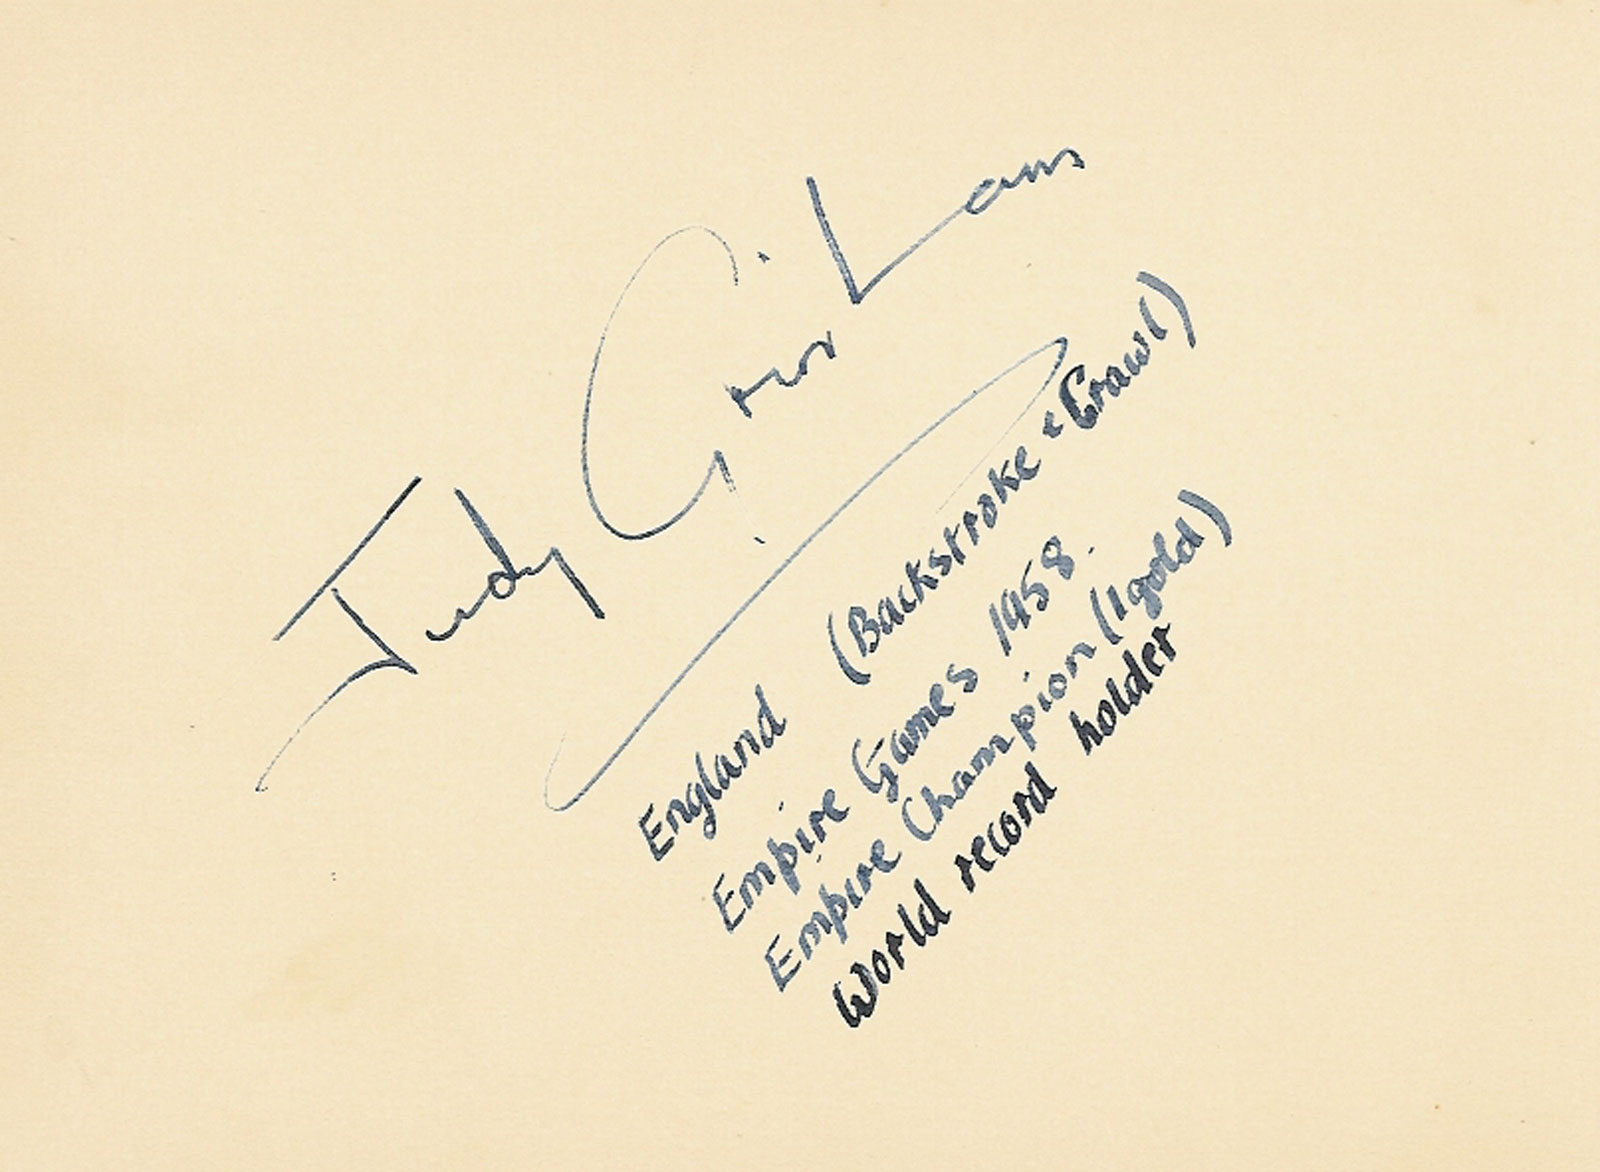 Judy Grinham
England (Backstroke & Crawl)
Empire Games 1958.
Empire Champion (1 gold)
World record holder